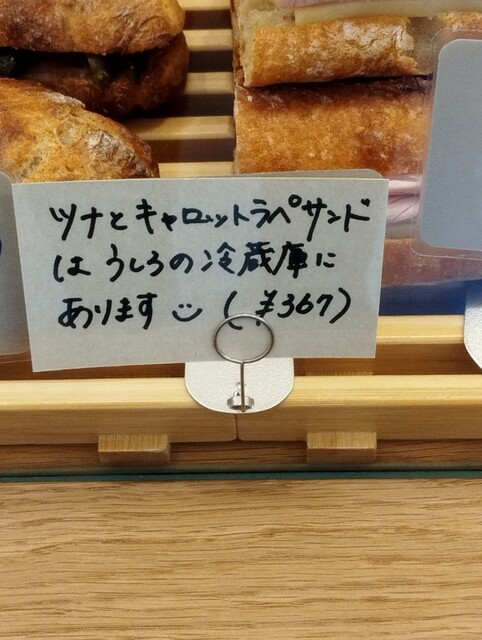 ツナとキャロットラペサンド
はうしろの冷蔵庫に
あります (¥367)